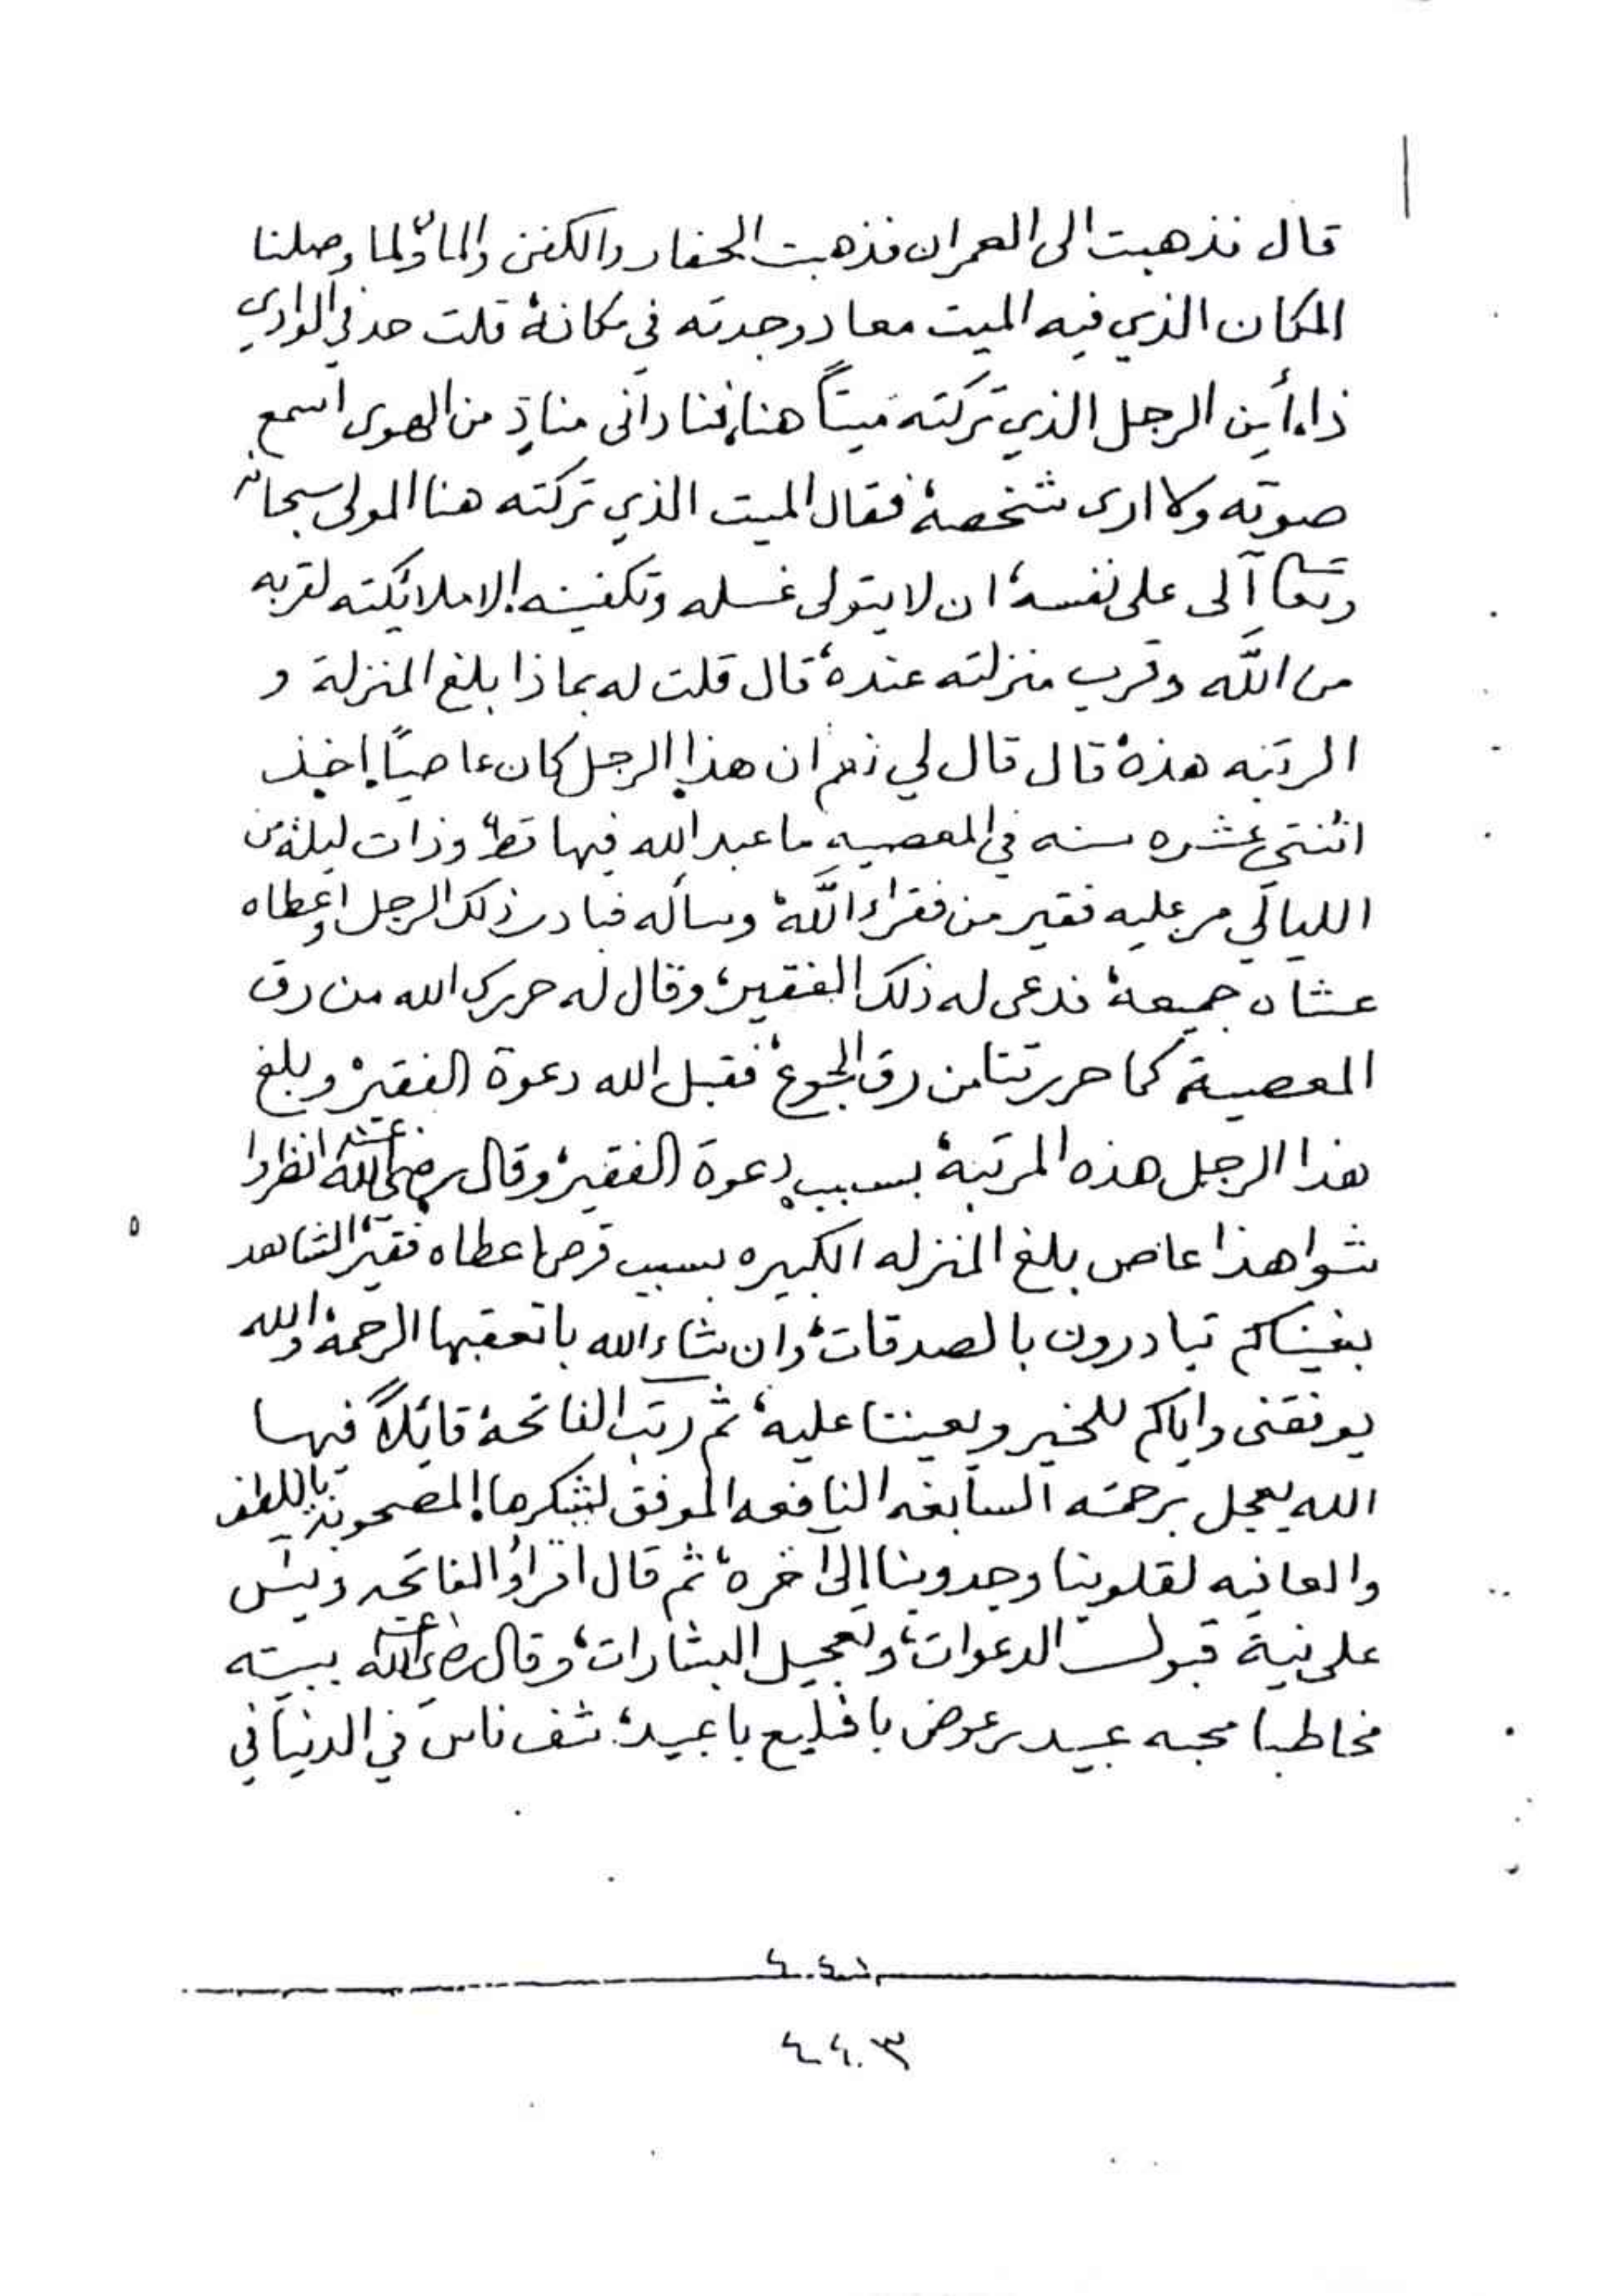 قال فذهبت الى العمران فذهبت الحفار والكفن والماء ولما وصلنا
المكان الذي فيه الميت معاد وجدته في مكانه قلت حد في الوادي
ذا، أين الرجل الذي تركته ميتاً هنا، فناداني منادٍ من الهوى اسمع
صوته ولا ارى شخصه، فقال الميت الذي تركته هنا المولى سبحانه
وتعالى آلى على نفسه، ان لا يتولى غسله وتكفينه إلا ملائكته لقربه
من الله وقرب منزلته عنده، قال قلت له بماذا بلغ المنزلة و
الرتبه هذه، قال قال لي نعم ان هذا الرجل كان عاصياً، اخذ
اثنتي عشره سنه في المعصيه ما عبد الله فيها قط، وذات ليلة من
الليالي مر عليه فقير من فقراء الله، وسأله فبادر ذلك الرجل واعطاه
عشاه جميعه، فدعى له ذلك الفقير، وقال له حررك الله من رق
المعصية كما حررتنا من رق الجوع، فقبل الله دعوة الفقير، وبلغ
هذا الرجل هذه المرتبة، بسبب دعوة الفقير، وقال رضي الله عنه انظروا
شوا هذا عاص بلغ المنزله الكبيره بسبب قرص اعطاه فقير، الشاهد
بغيناكم تبادرون بالصدقات، وان شاء الله با تعقبها الرحمة، والله
يوفقني واياكم للخير ويعيننا عليه، ثم رتب الفاتحة، قائلاً فيها
الله يعجل برحمته السابغه النافعه الموفق لشكرها، المصحوبة باللطف
والعافيه لقلوبنا وجدوبنا، إلى اخره، ثم قال اقرأوا الفاتحه ويس
على نية قبول الدعوات، وتعجيل البشارات، وقال رضي الله عنه ببيته
مخاطبا محبه عبيد عوض بافليع يا عبيد، شف ناس في الدنيا في
٤٤٠٣